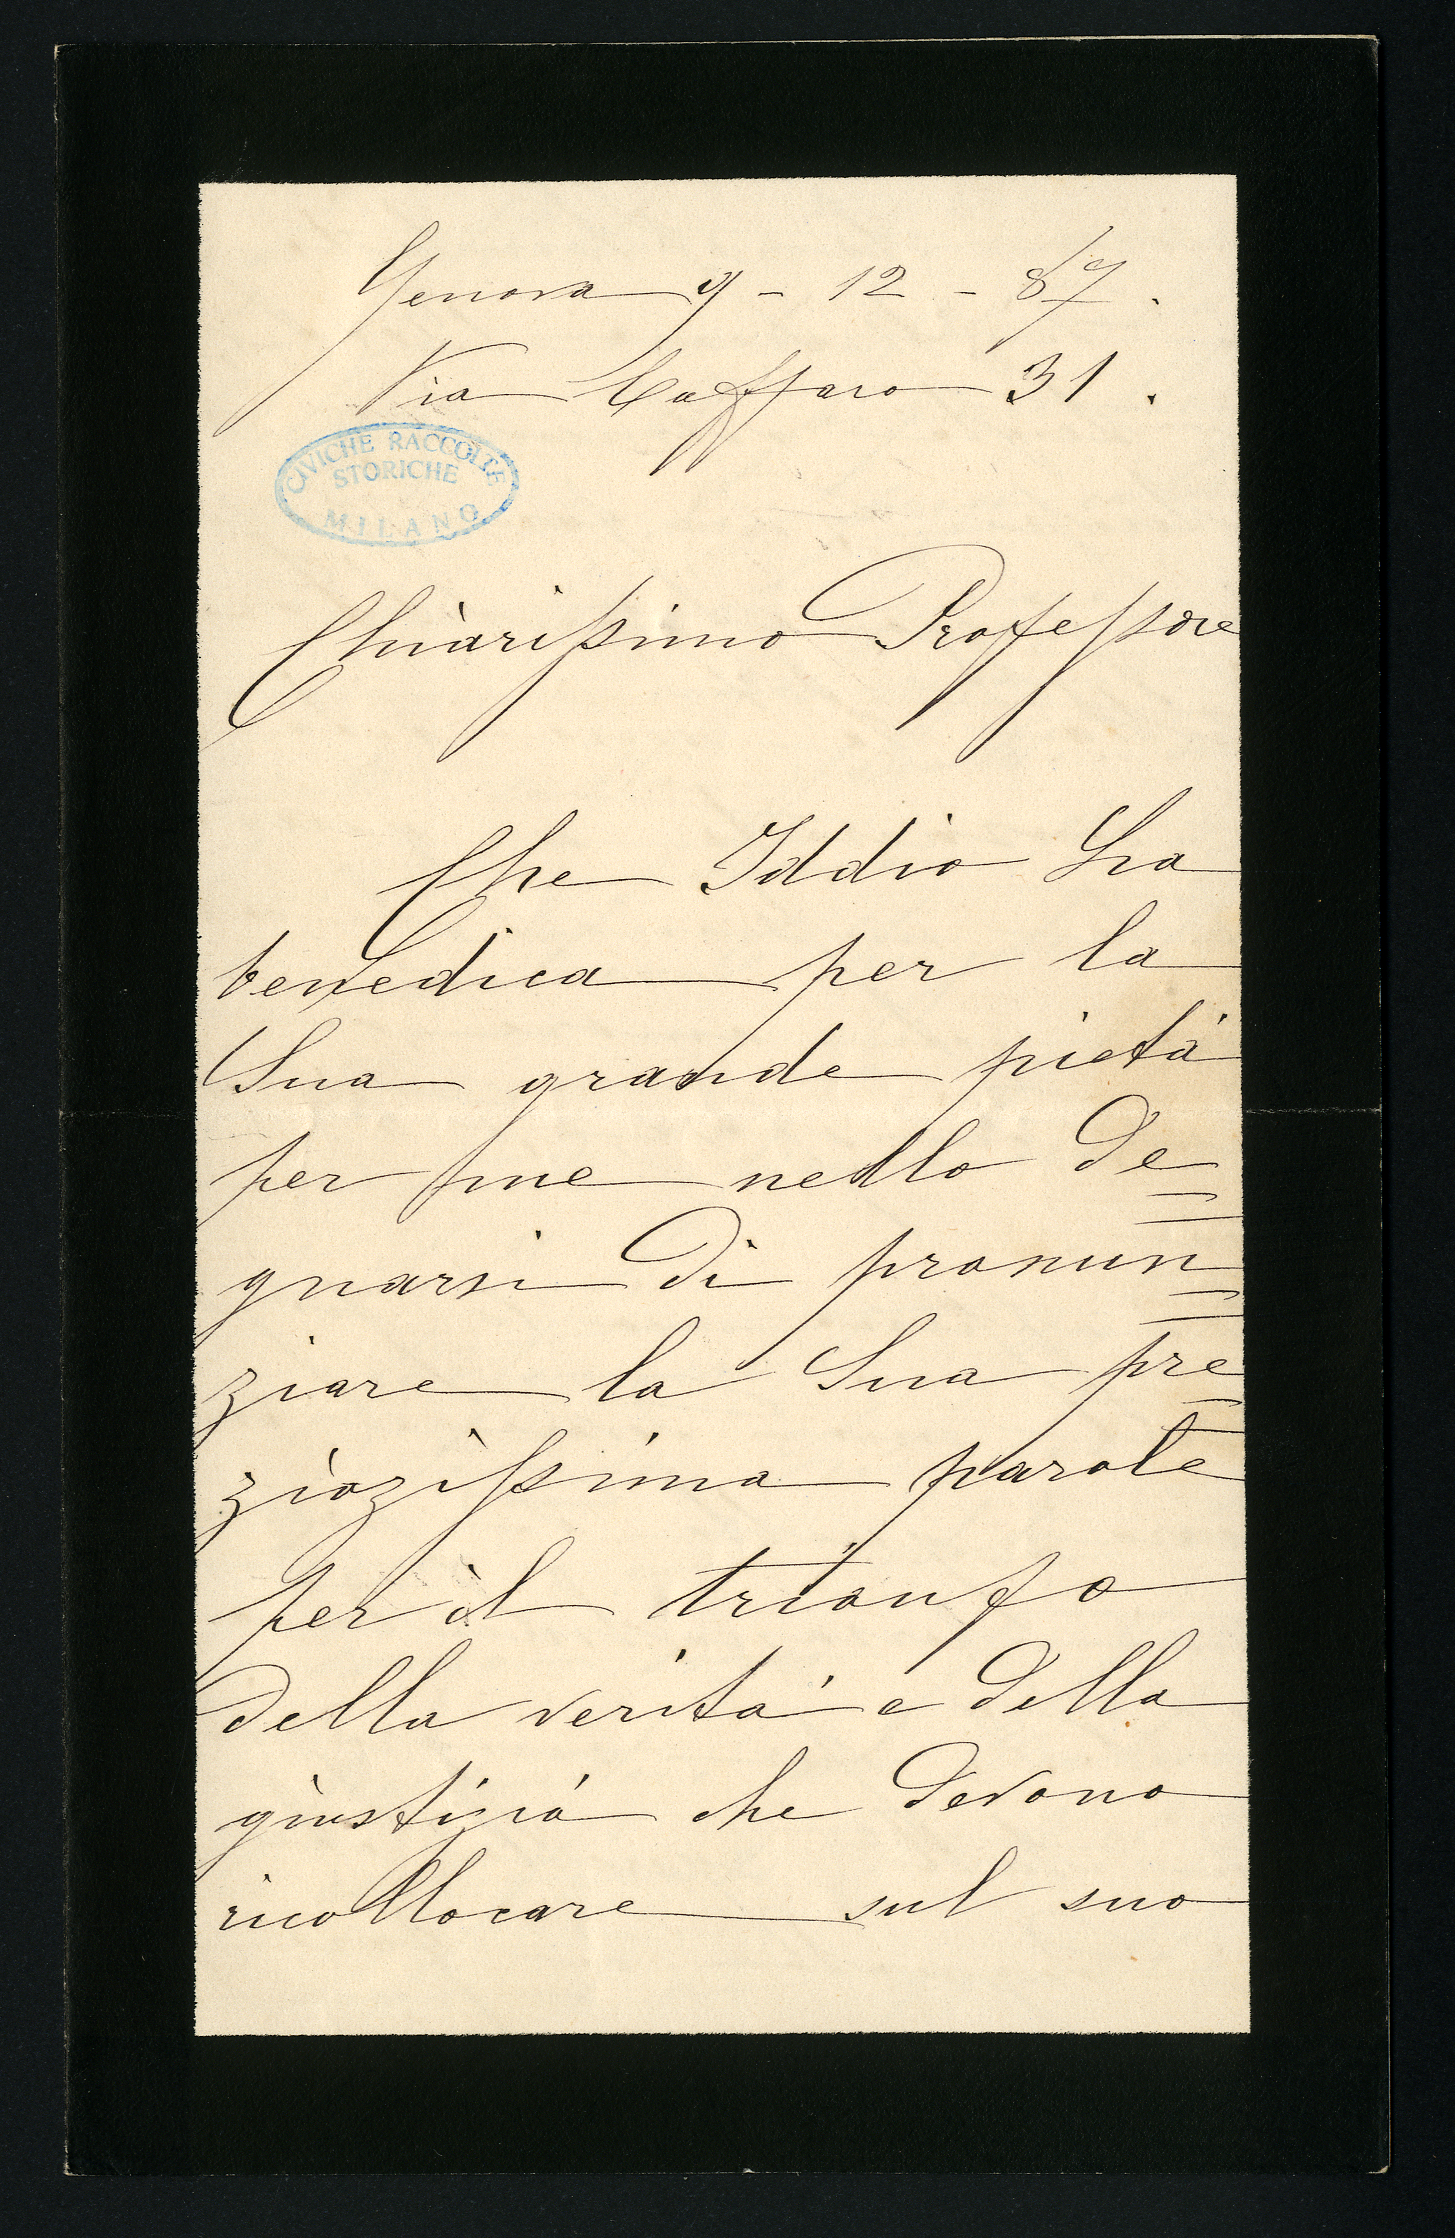 Genova 9 - 12 - 87.
Via Caffaro 31.
CIVICHE RACCOLTE
STORICHE
MILANO
Chiarissimo Professore
Che Iddio La
benedica per la
Sua grande pietà
per me nello de=
gnarsi di pronun=
ziare la Sua pre=
ziozissima parole
per il trionfo
della verità e della
giustizia che devono
ricollocare sul suo